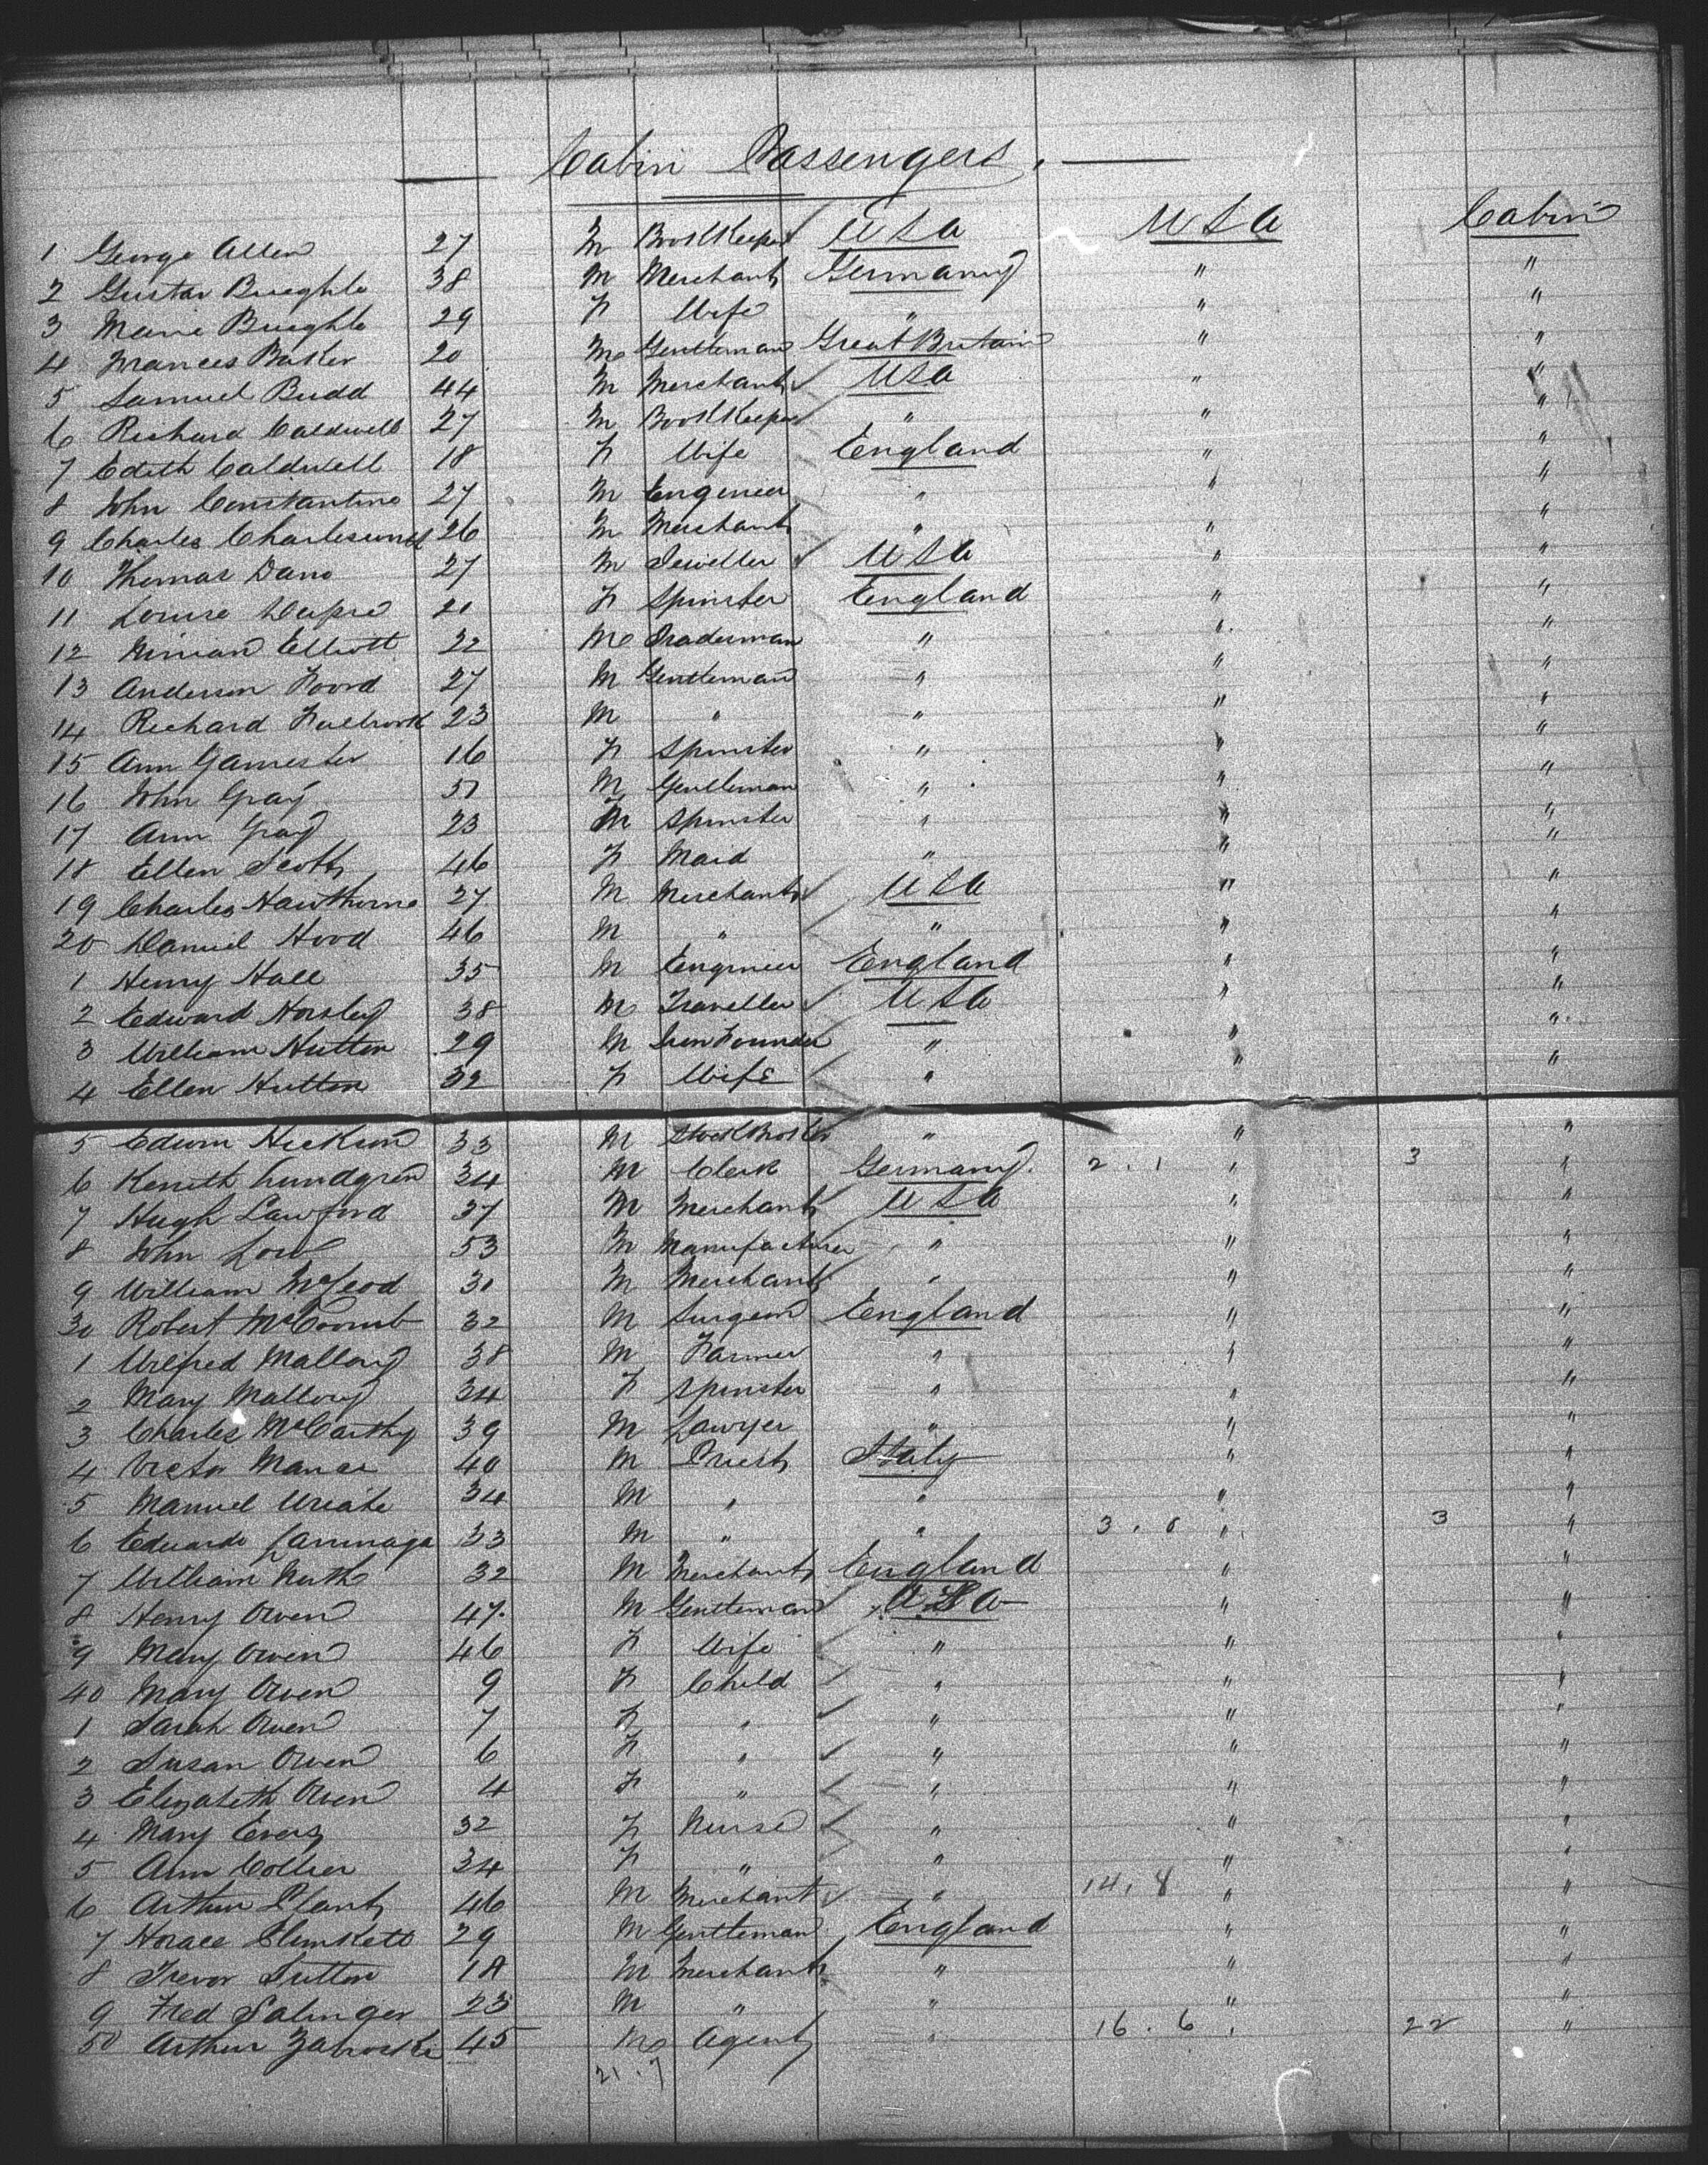 Cabin Passengers.
1 George Allen 27 M BookKeeper USA USA Cabin
2 Gustav Bueghle 38 M Merchant Germany " "
3 Marie Bueghle 29 F Wife " " "
4 Frances Baker 20 M Gentleman Great Britain " "
5 Samuel Budd 44 M Merchant USA " "
6 Richard Caldwell 27 M BookKeeper " " "
7 Edith Caldwell 18 F Wife England " "
8 John Constantine 27 M Engineer " " "
9 Charles 26 M Merchant " " "
10 Thomas Dano 27 M Jeweller USA " "
11 Louise Dupre 21 F Spinster England " "
12 Ninian Elliott 22 M Tradesman " " "
13 Anderson Foord 27 M Gentleman " " "
14 Richard 23 M " " " "
15 Ann Gamester 16 F Spinster " " "
16 John Gray 51 M Gentleman " " "
17 Ann Gray 23 Spinster " " "
18 Ellen Scott 46 F Maid " " "
19 Charles Hawthorne 27 M Merchant USA " "
20 Daniel Hood 46 M " " " "
1 Henry Hall 35 M Engineer England " "
2 Edward Horsley 38 M Traveller USA " "
3 William Hutton 29 M Iron Founder " " "
4 Ellen Hutton 32 F Wife " " "
5 Edwin 33 M StockBroker " " "
6 Kenith Lundgren 34 M Clerk Germany 2.1 " 3 "
7 Hugh Lawford 37 M Merchant USA " "
8 John Low 53 M Manufacturer " " "
9 William McLeod 31 M Merchant " " "
30 Robert McCoomb 32 M Surgeon England " "
1 Wilfred Mallory 38 M Farmer " " "
2 Mary Mallory 34 F Spinster " " "
3 Charles McCarthy 39 M Lawyer " " "
4 Victor 40 M Priest Italy " "
5 Manuel Uriate 34 M " " " "
6 Eduardo Larrinaga 33 M " " 3.0 " 3 "
7 William 32 M Merchant England " "
8 Henry Owen 47 M Gentleman USA " "
9 Mary Owen 46 F Wife " " "
40 Mary Owen 9 F Child " " "
1 Sarah Owen 7 F " " " "
2 Susan Owen 6 F " " " "
3 Elizabeth Owen 4 F " " " "
4 Mary Evers 32 F Nurse " " "
5 Ann Collier 34 F " " " "
6 Arthur Plant 46 M Merchant " 14.8 " "
7 Horace Plunkett 29 M Gentleman England " "
8 Trevor Sutton 18 M Merchant " " "
9 Fred Salinger 23 M " " " "
50 Arthur 45 M Agent " 16.6 " 22 "
21.7